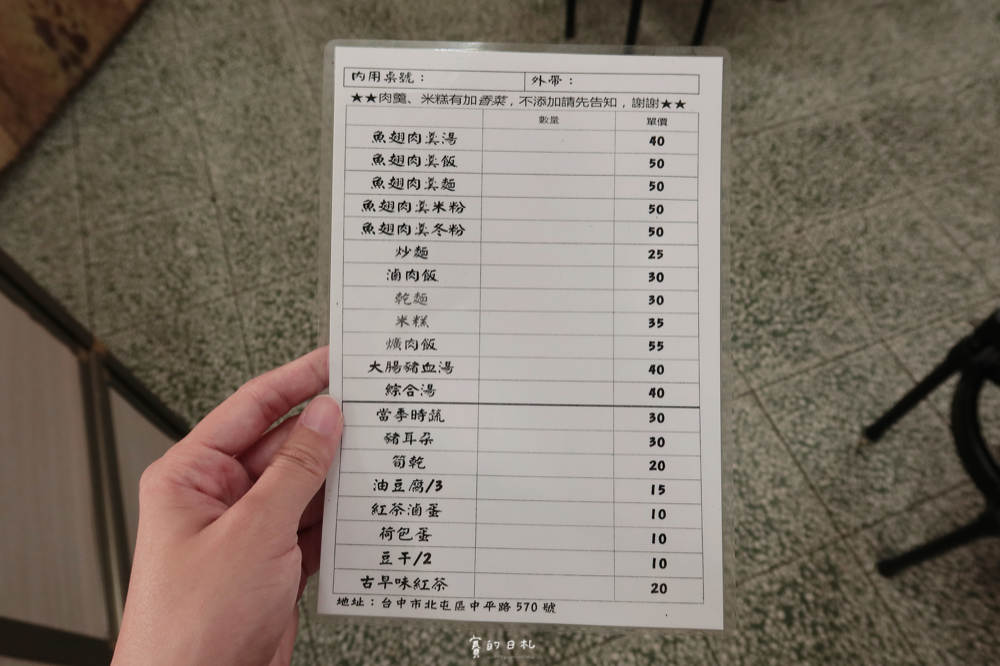 內用桌號： 外帶：
★★肉羹、米糕有加香菜，不添加請先告知，謝謝★★
數量 單價
魚翅肉羹湯 40
魚翅肉羹飯 50
魚翅肉羹麵 50
魚翅肉羹米粉 50
魚翅肉羹冬粉 50
炒麵 25
滷肉飯 30
乾麵 30
米糕 35
爌肉飯 55
大腸豬血湯 40
綜合湯 40
當季時蔬 30
豬耳朵 30
筍乾 20
油豆腐/3 15
紅茶滷蛋 10
荷包蛋 10
豆干/2 10
古早味紅茶 20
地址：台中市北屯區中平路570號
賽的日札